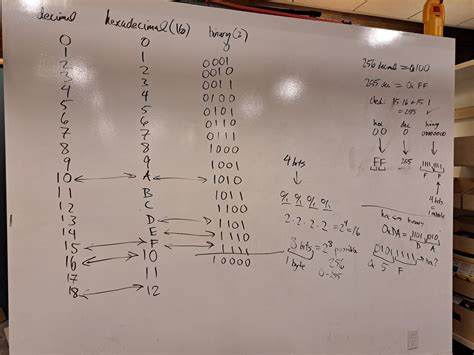 decimal hexadecimal (16) binary (2)
0 0
1 1 0001
2 2 0010
3 3 0011
4 4 0100
5 5 0101
6 6 0110
7 7 0111
8 8 1000
9 9 1001
10 A 1010
11 B 1011
12 C 1100
13 D 1101
14 E 1110
15 F 1111
16 10 10000
17 11
18 12
4 bits
0/1 0/1 0/1 0/1
2 · 2 · 2 · 2 = 2⁴ = 16
bits = 2⁸ possible
1 byte 256
0-255
256 decimal = 0x100
255 dec = 0xFF
check: 15·16 + 15·1
= 255 ✓
hex dec binary
00 0 00000000
FF 255 1111 1111
F F
4 bits
= 1 nibble
hex binary
0xDA = 1101 1010
D A
0101 1111 hex?
0x 5 F